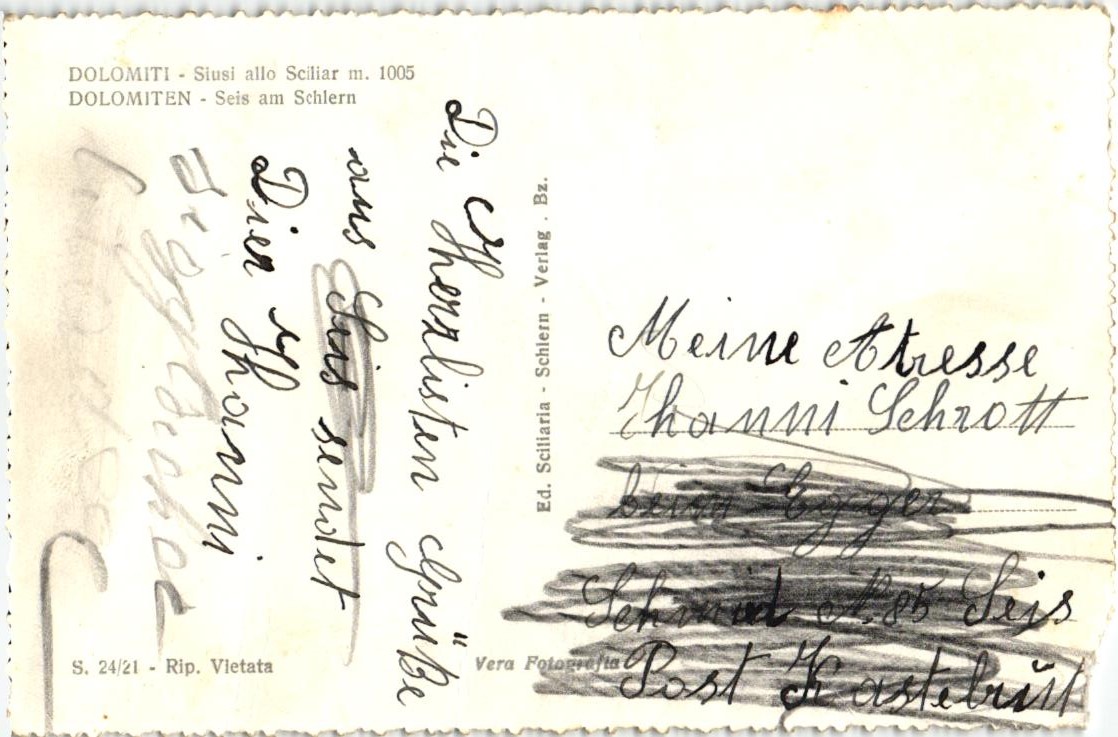 DOLOMITI - Siusi allo Sciliar m. 1005
DOLOMITEN - Seis am Schlern
Die Herzlisten Grüße
aus Seis sendet
Dier
Hanni
Ed. Sciliaria - Schlern - Verlag . Bz.
Meine Atresse
Hanni Schrott
beim Egger
Schmid N. 85 Seis
Post Kastelrŭt
S. 24/21 - Rip. Vietata
Vera Fotografia